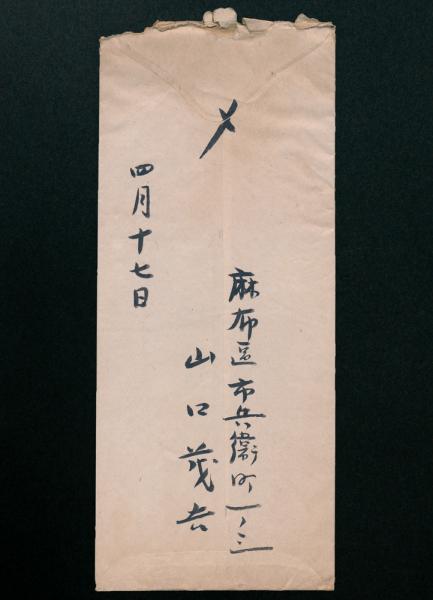 〆
麻布區市兵衛町一ノ三
山口茂吉
四月十七日